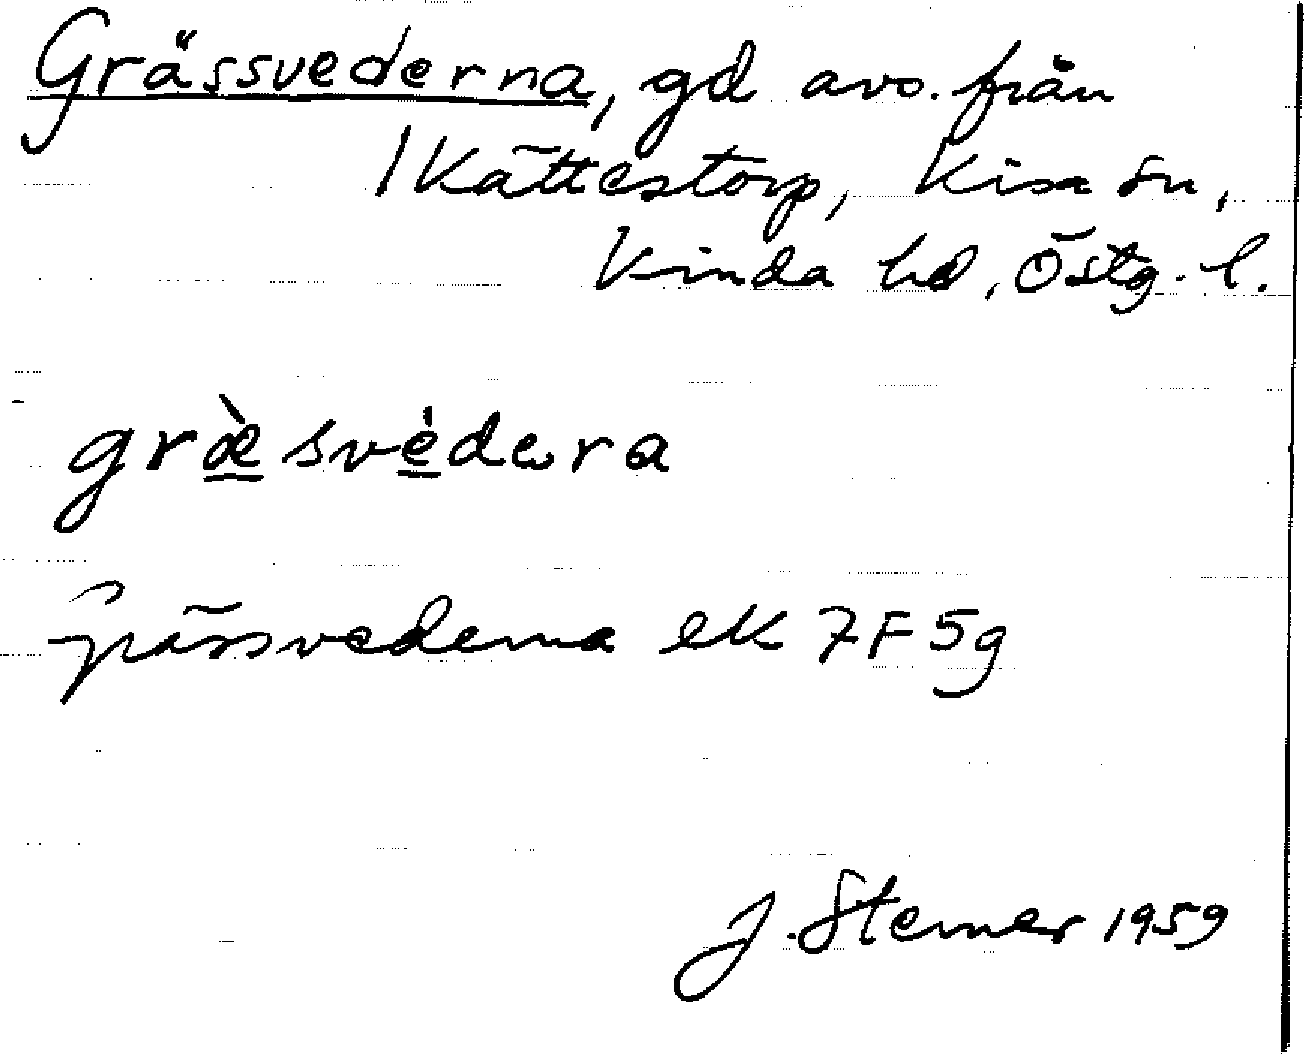 Grässvederna, gd avs. från
1 Kättestorp, Kisa sn,
Kinda hd, Östg. l.
græ̀svėdera
Grässvederna ek 7F5g
J. Sterner 1959